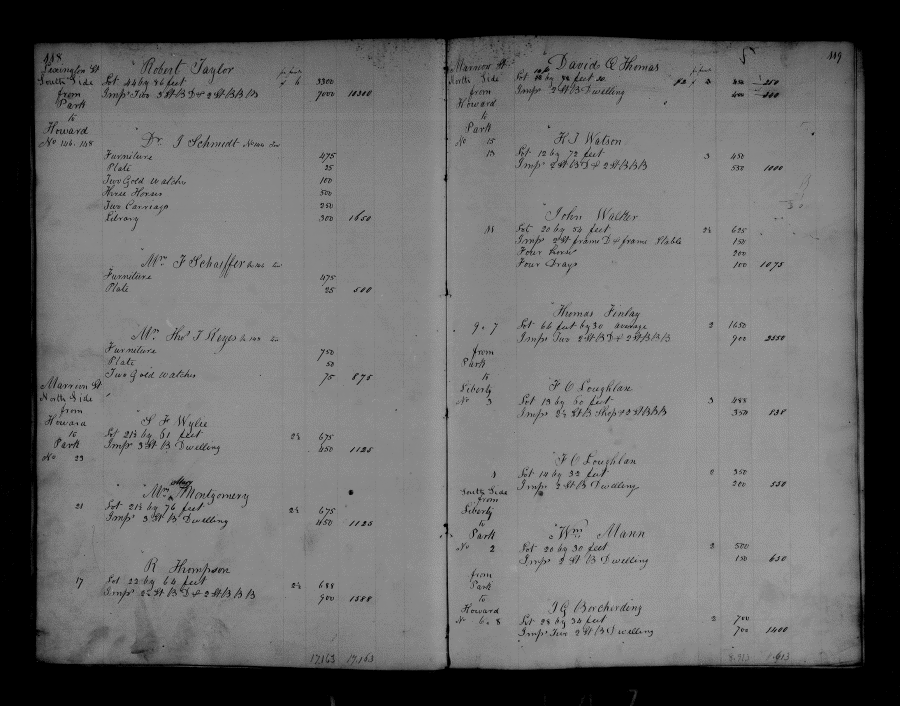 118
Lexington St Robert Taylor
South Side Lot 44 by 76 feet 3300
from Imps Two 3 St B D & 2 St B B B 7000 10300
Park
to
Howard
No 146.148 Dr. I Schmedt
Furniture 475
Plate 25
Two Gold watchs 100
Horses 500
Two Carriags 250
Library 300 1650
Mr. F Schaffer
Furniture 475
Plate 25 500
Mr Thos I Keyes
Furniture 750
Plate 50
Two Gold watches 75 875
Marrion St
North Side
from
Howard S F Wylie
to Lot 21½ by 61 feet 2½ 675
Park Imps 3 St B Dwelling 450 1125
No 23
Mrs Mary Montgomery
21 Lot 21½ by 76 feet 2½ 675
Imps 3 St B Dwelling 450 1125
R Thompson
17 Lot 22 by 64 feet 2½ 688
Imps 2½ St B D & 2 St B B B 900 1588
17,163 17,163
119
Marrion St David R Thomas
North Side Lot by 72 feet
from Imps 2 St B Dwelling 400
Howard
to
Park
No 15 H I Watson
13 Lot 12 by 72 feet 3 450
Imps 2 St B D & 2 St B B B 550 1000
John Walker
11 Lot 20 by 54 feet 2½ 625
Imps 2 St frame D & frame Stable 150
Four horses 200
Four Drays 100 1075
Thomas Finlay
9 & 7 Lot 66 feet by 30 average 2 1650
Imps Two 2 St B D & 2 St B B B 900 2550
from
Park
to
Liberty F C Loughlan
No 3 Lot 13 by 60 feet 3 488
Imps 2½ St B Shop & 2 St B B B 350
F C Loughlan
1 Lot 14 by 32 feet 2 350
Imps 2 St B Dwelling 200 550
South Side
from
Liberty
to
Park Wm Mann
No 2 Lot 20 by 30 feet 2 500
Imps 2 St B Dwelling 150 650
from
Park
to
Howard I G Borcherding
No 6 & 8 Lot 28 by 34 feet 2 700
Imps Two 2 St B Dwelling 700 1400